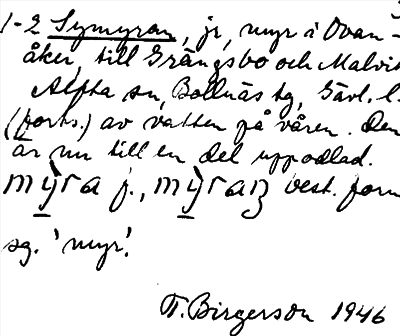 1-2 Symyran, jr, myr i Ovan-
åker, till Grängsbo och Malvik
Alfta sn, Bollnäs tg, Gävl. l.
(forts.) av vatten på våren. Den
är nu till en del uppodlad.
mỳra f., mỳraŋ best. form
sg. 'myr'.
T. Birgerson 1946